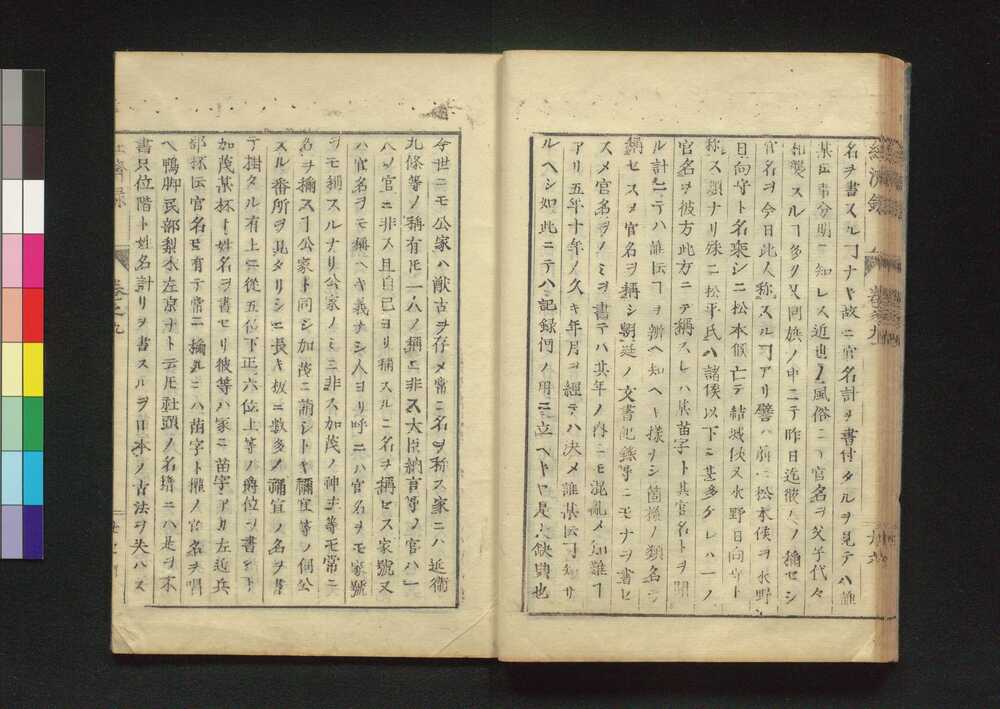 經濟録 卷之九
名ヲ書スル𬼂ナキ故ニ官名計ヲ書付タルヲ見テハ誰
某ト云コト分明ニ知レス近世ノ風俗ニテ官名ヲ父子代々
相襲スルヿ多ク又同族ノ中ニテ昨日迄彼人ノ稱セシ
官名ヲ今日此人称スルヿアリ譬ハ前ニ松本侯ヲ水野
日向守ト名乗シニ松本侯亡テ結城侯又水野日向守ト
称ス類ナリ殊ニ松平氏ハ諸侯以下ニ甚多ケレハ一ノ
官名ヲ彼方此方ニテ稱スレハ其苗字ト其官名トヲ聞
ル計ニテハ誰ト云ヿヲ辨ヘ知ヘキ様ナシ箇様ノ類名ヲ
稱セスメ官名ヲ稱シ朝廷ノ文書記録等ニモナヲ書セ
スメ官名ヲノミヲ書テハ其年ノ内ニモ混亂メ知難キヿ
アリ五年十年ノ久キ年月ヲ經テハ決メ誰某ト云ヿ知
ルヘシ如此ニテハ記録們ノ用ニ立ヘトヤ是大缺典也
今世ニモ公家ハ猷古ヲ存メ常ニ名ヲ称ス家ニハ近衛
九條等ノ稱有𪜈一人ノ稱ニ非ス大臣納言等ノ官ハ一
人ノ官ニ非ス且自己ヨリ稱スルニ名ヲ稱セス家號又
ハ官名ヲ稱ヘキ義ナシ人ヨリ呼ニハ官名ヲモ家號
ヲモ稱スルナリ公家ノミニ非ス加茂ノ神主等モ常ニ
名ヲ稱スヿ公家ト同シ加茂ニ詣シトキ禰宜等ノ伺公
スル番所ヲ見タリシニ長キ板ニ數多ノ禰宜ノ名ヲ書
テ掛タル有上ニ從五位下正六位上等ノ爵位ヲ書シ下
加茂某杯ト姓名ヲ書セリ彼等ハ家ニ苗字アリ左近兵
部杯云官名モ有テ常ニ稱ルニハ苗字ト權ノ官名ヲ唱
ヘ鴨脚民部梨木左京ナト云𪜈社頭ノ名簿ニハ是ヲ不
書只位階ト姓名計リヲ書スルヲ日本ノ古法ヲ失ハス
濟録 卷之九